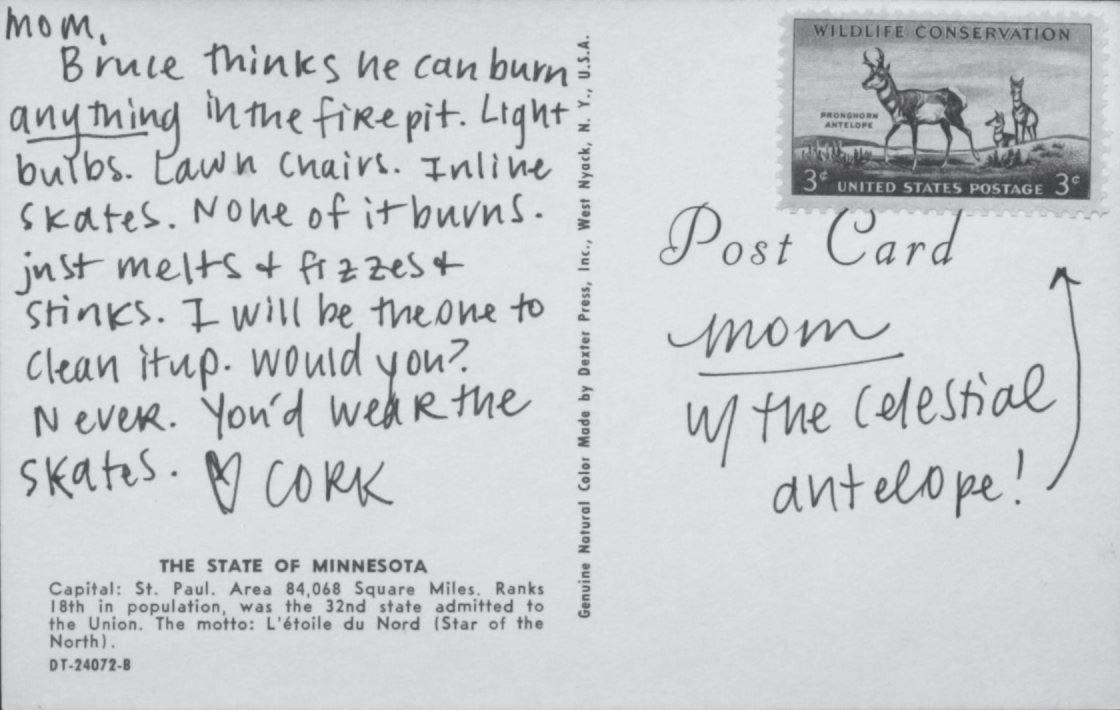 Mom,
Bruce thinks he can burn
anything in the fire pit. Light
bulbs. Lawn chairs. Inline
skates. None of it burns.
just melts + fizzes +
stinks. I will be the one to
clean it up. Would you?
Never. You'd wear the
skates. ♡ CORK
THE STATE OF MINNESOTA
Capital: St. Paul. Area 84,068 Square Miles. Ranks
18th in population, was the 32nd state admitted to
the Union. The motto: L'étoile du Nord (Star of the
North).
DT-24072-B
Genuine Natural Color Made by Dexter Press, Inc., West Nyack, N. Y., U.S.A.
WILDLIFE CONSERVATION
PRONGHORN
ANTELOPE
3¢ UNITED STATES POSTAGE 3¢
Post Card
mom
w/ the celestial
antelope!